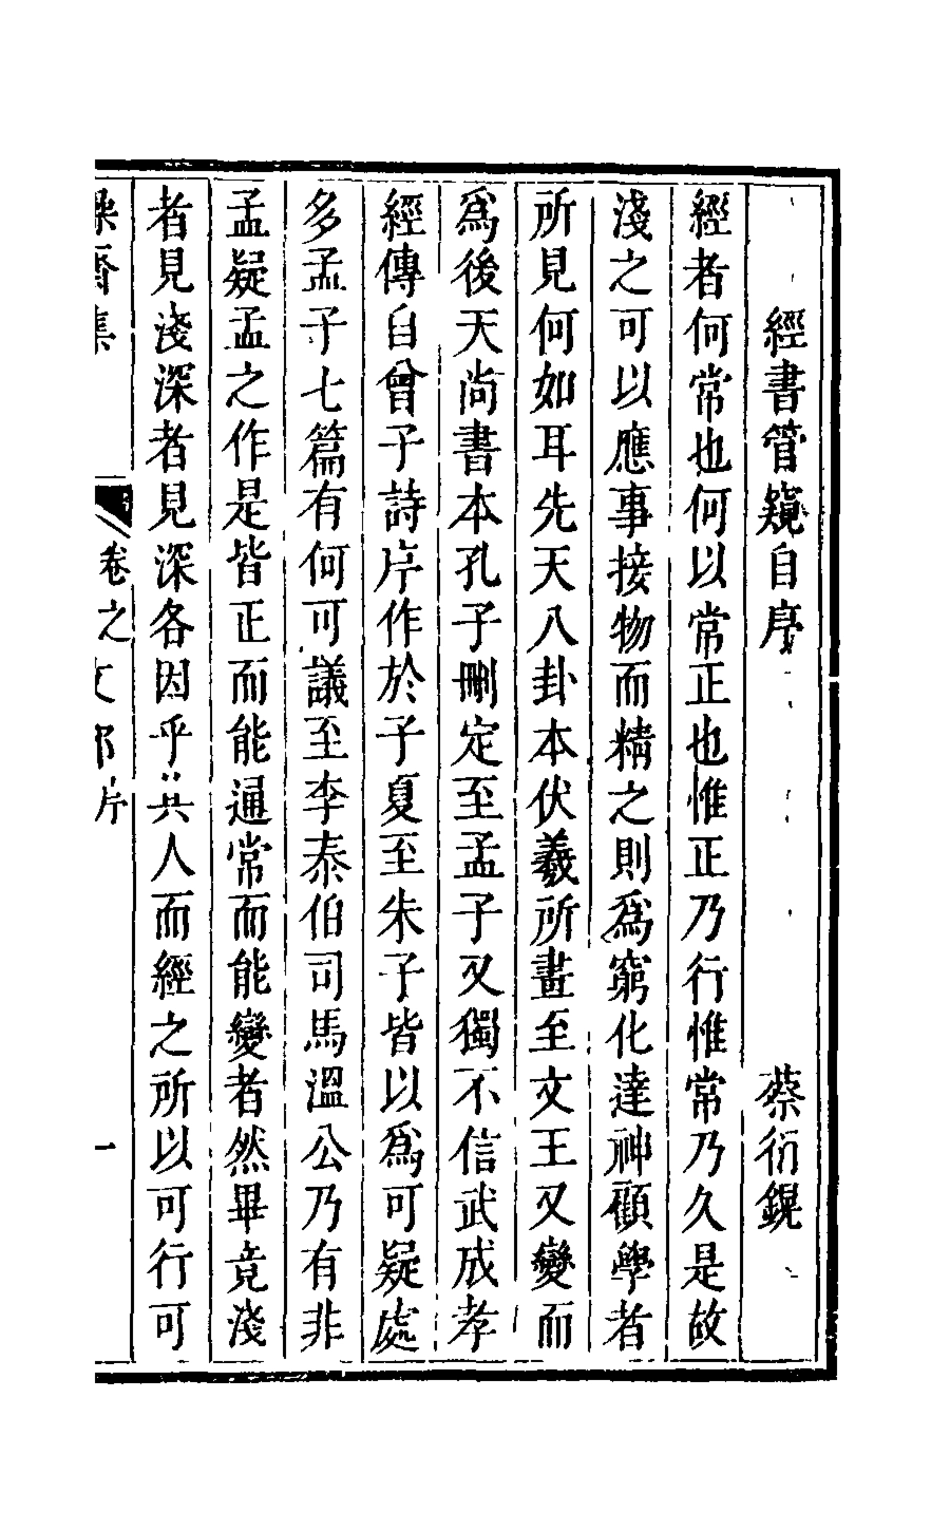 經書管窺自序
蔡衍鎤
經者何常也何以常正也惟正乃行惟常乃久是故
淺之可以應事接物而精之則爲窮化達神顧學者
所見何如耳先天八卦本伏羲所畫至文王又變而
爲後天尚書本孔子刪定至孟子又獨不信武成孝
經傳自曾子詩序作於子夏至朱子皆以爲可疑處
多孟子七篇有何可議至李泰伯司馬溫公乃有非
孟疑孟之作是皆正而能通常而能變者然畢竟淺
者見淺深者見深各因乎其人而經之所以可行可
齋集
卷之
一